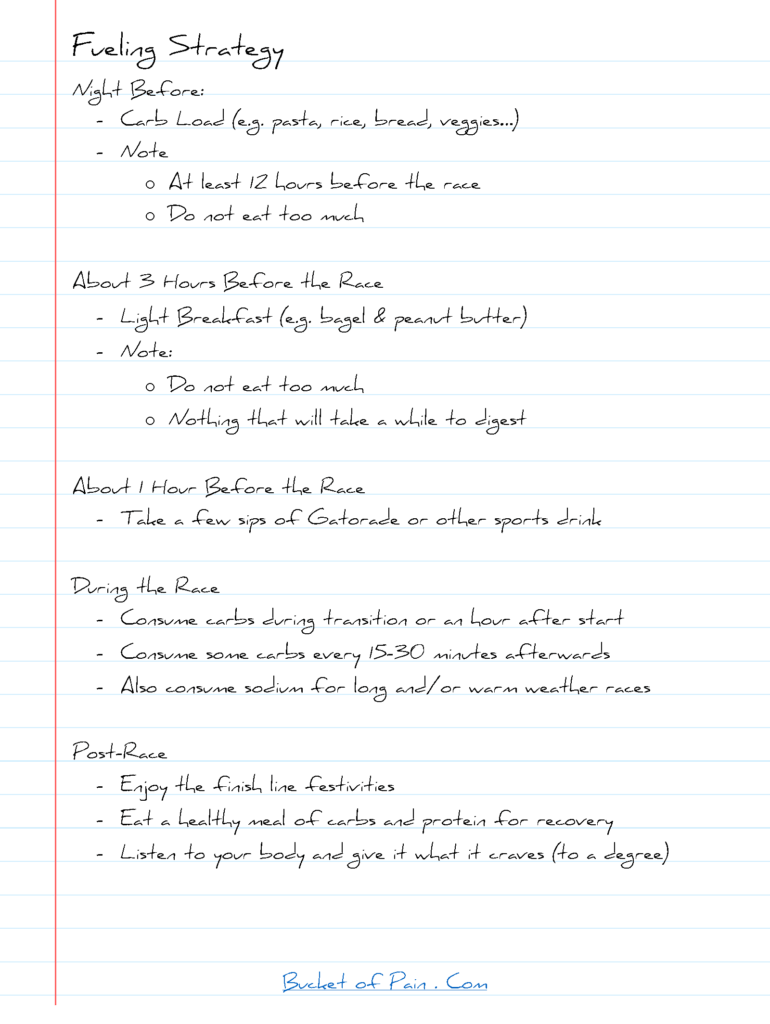 Fueling Strategy
Night Before:
- Carb Load (e.g. pasta, rice, bread, veggies...)
- Note
o At least 12 hours before the race
o Do not eat too much
About 3 Hours Before the Race
- Light Breakfast (e.g. bagel & peanut butter)
- Note:
o Do not eat too much
o Nothing that will take a while to digest
About 1 Hour Before the Race
- Take a few sips of Gatorade or other sports drink
During the Race
- Consume carbs during transition or an hour after start
- Consume some carbs every 15-30 minutes afterwards
- Also consume sodium for long and/or warm weather races
Post-Race
- Enjoy the finish line festivities
- Eat a healthy meal of carbs and protein for recovery
- Listen to your body and give it what it craves (to a degree)
Bucket of Pain . Com